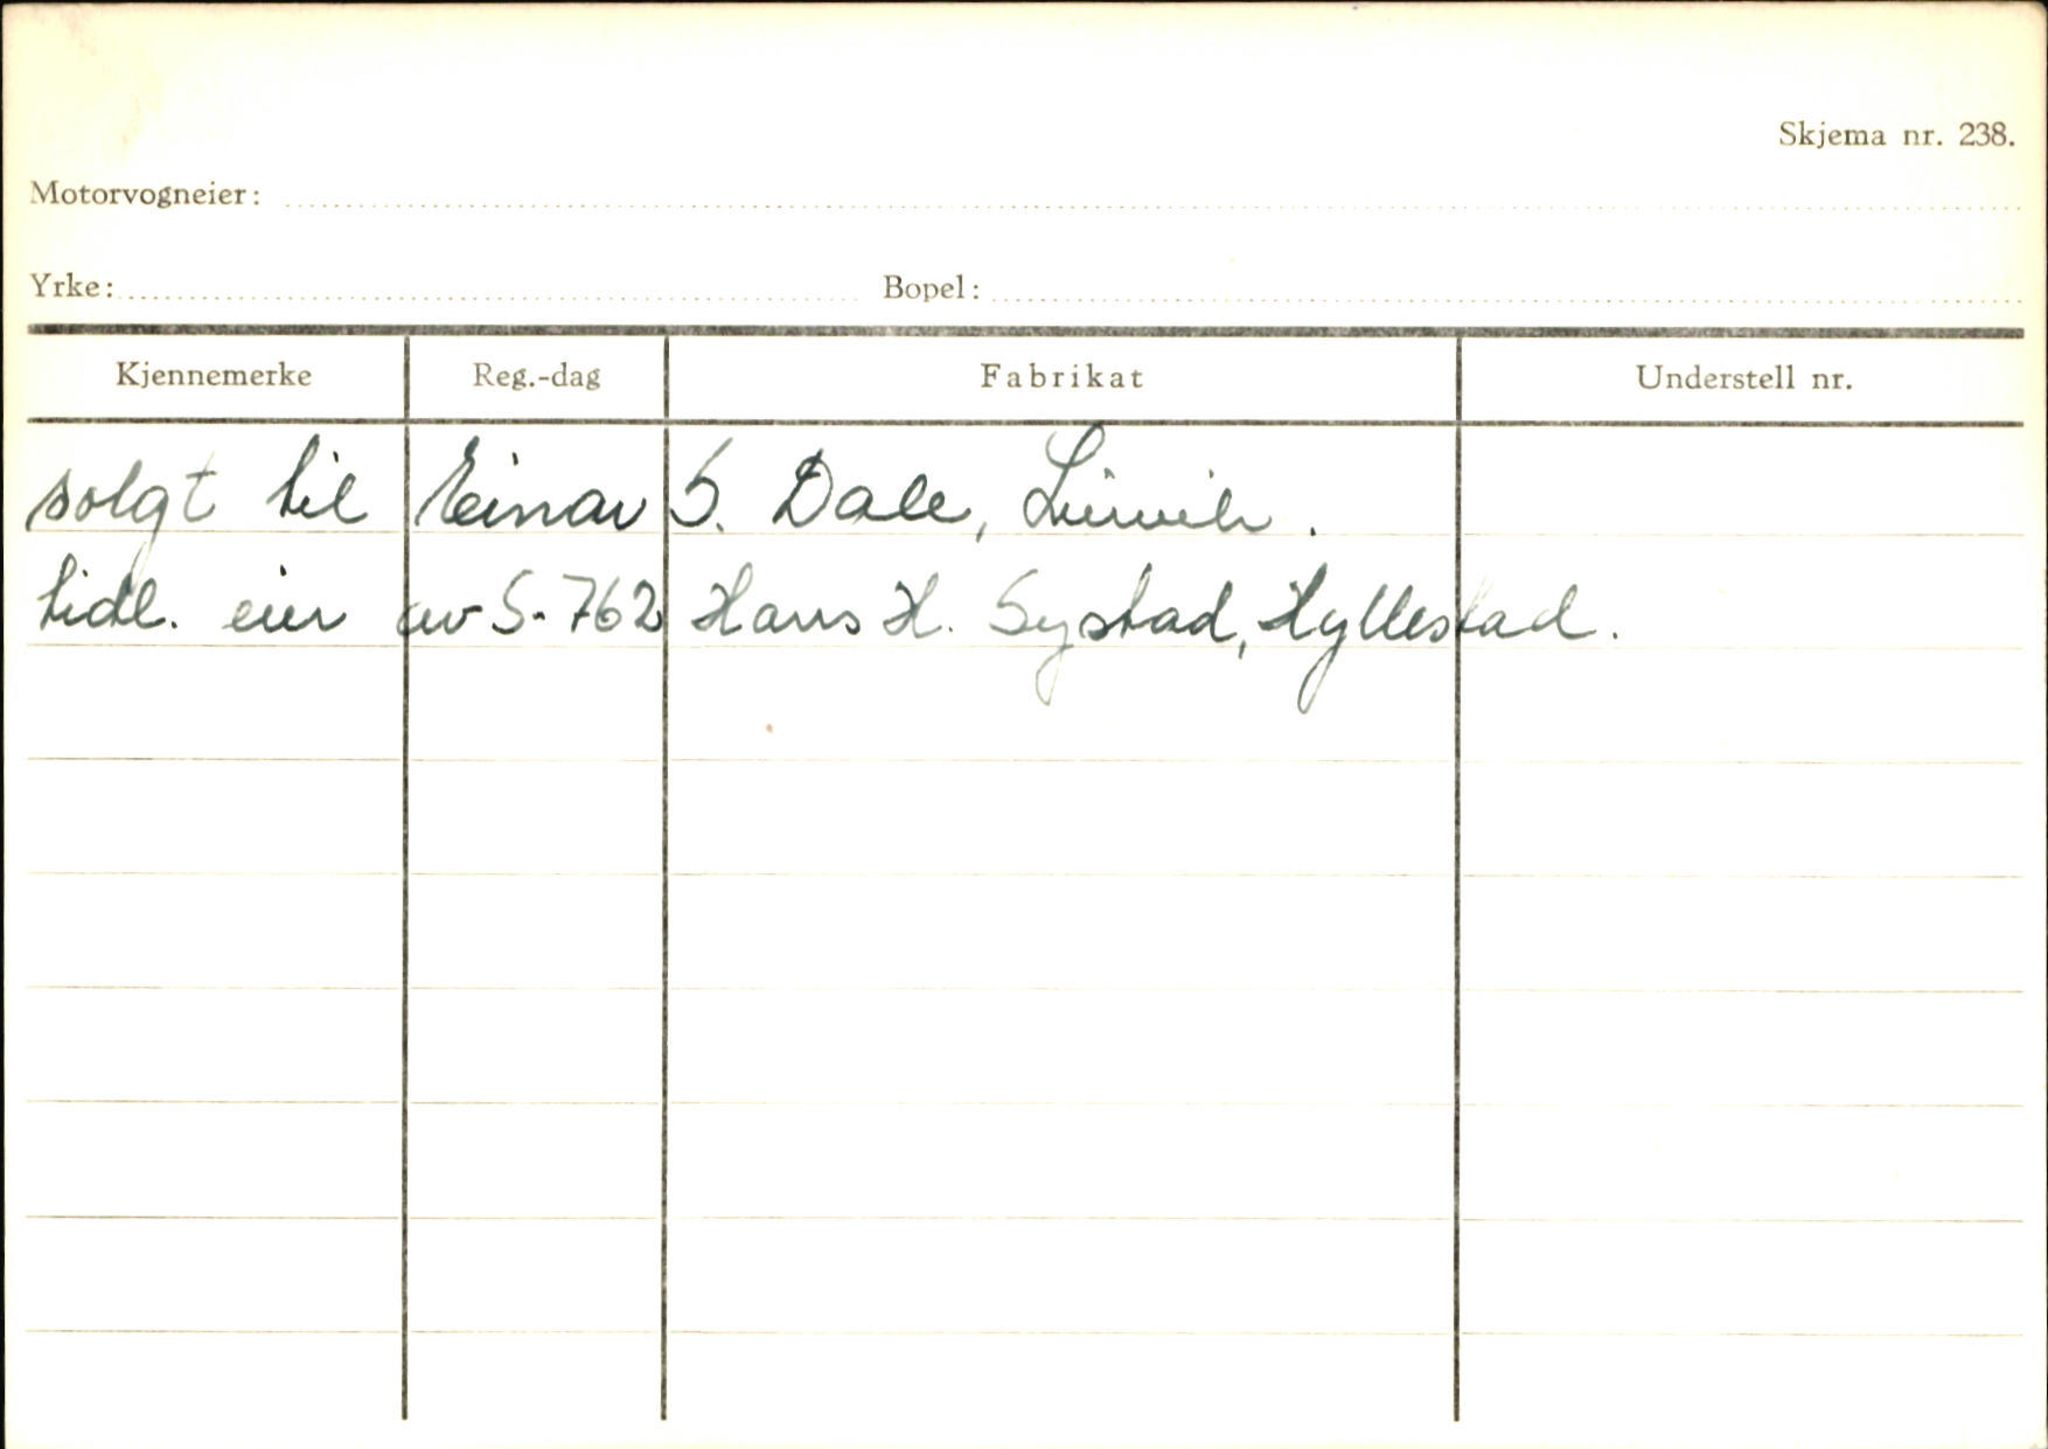 Skjema nr. 238.
Motorvogneier:
Yrke: Bopel:
Kjennemerke Reg.-dag Fabrikat Understell nr.
solgt til Einar S. Dale, Luvik.
tidl. eier av S-762 Hans H. Systad, Hyllestad.